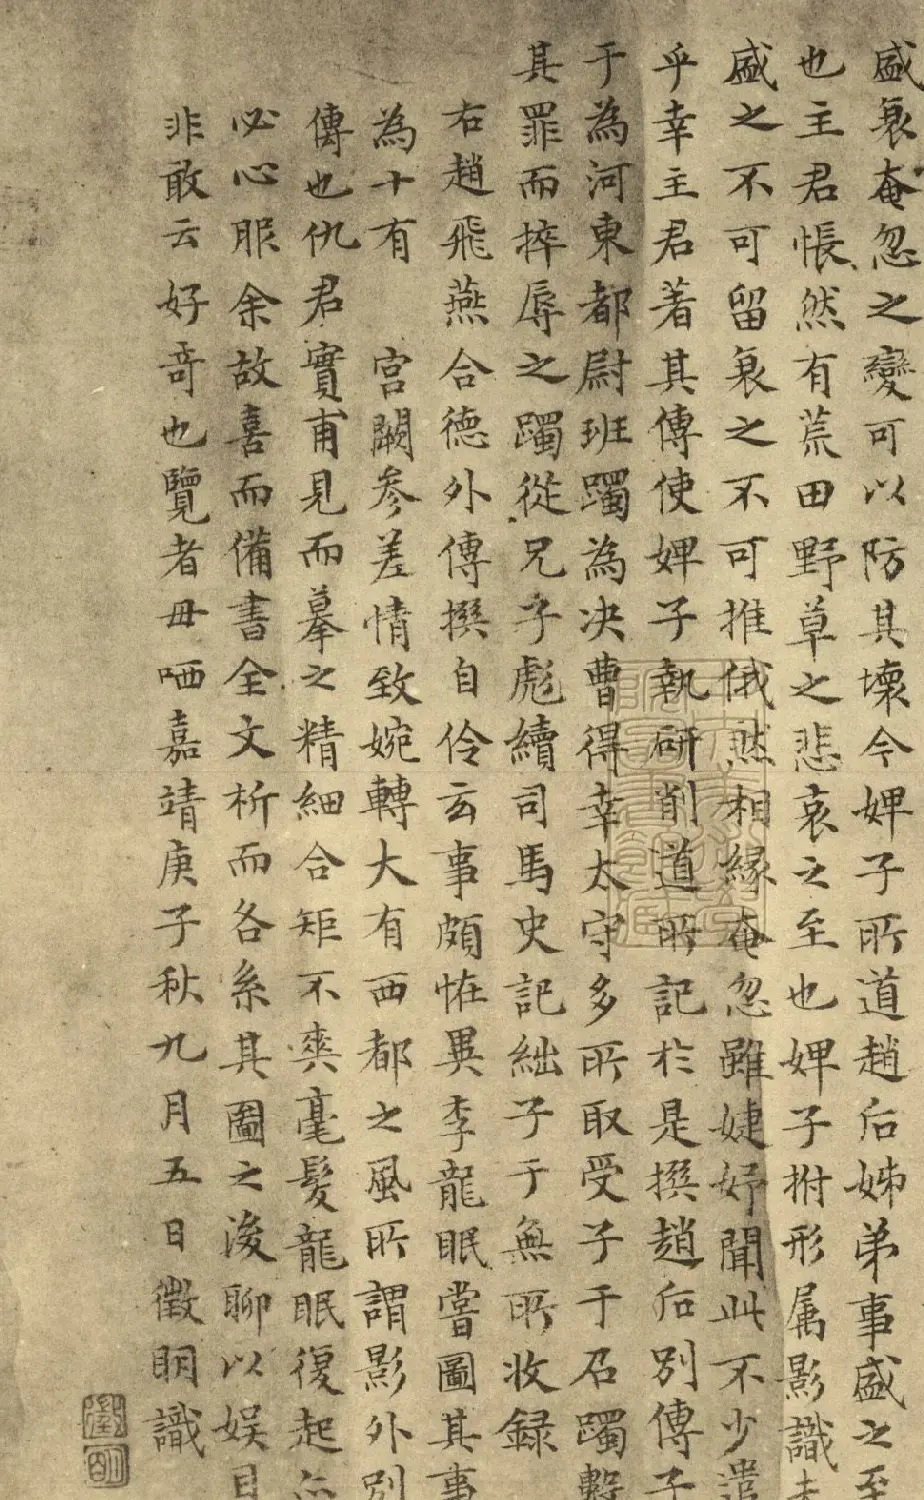 盛衰奄忽之變可以防其壞今婢子所道趙后姊弟事盛之至
也主君悵然有荒田野草之悲哀之至也婢子拊形属影識夫
盛之不可留衰之不可推俄然相緣奄忽雖婕妤聞此不少遣
乎幸主君著其傳使婢子執研削道所記於是撰趙后別傳子
于為河東都尉班躅為决曹得幸太守多所取受子于召躅數
其罪而捽辱之躅從兄子彪續司馬史記絀子于無所收録
右趙飛燕合德外傳撰自伶玄事頗恠異李龍眠嘗圖其事
為十有 宮闕参差情致婉轉大有西都之風所謂影外別
傳也仇君實甫見而摹之精細合矩不爽毫髮龍眠復起亦
必心服余故喜而備書全文析而各系其圖之後聊以娱目
非敢云好奇也覽者毋哂嘉靖庚子秋九月五日徵明識